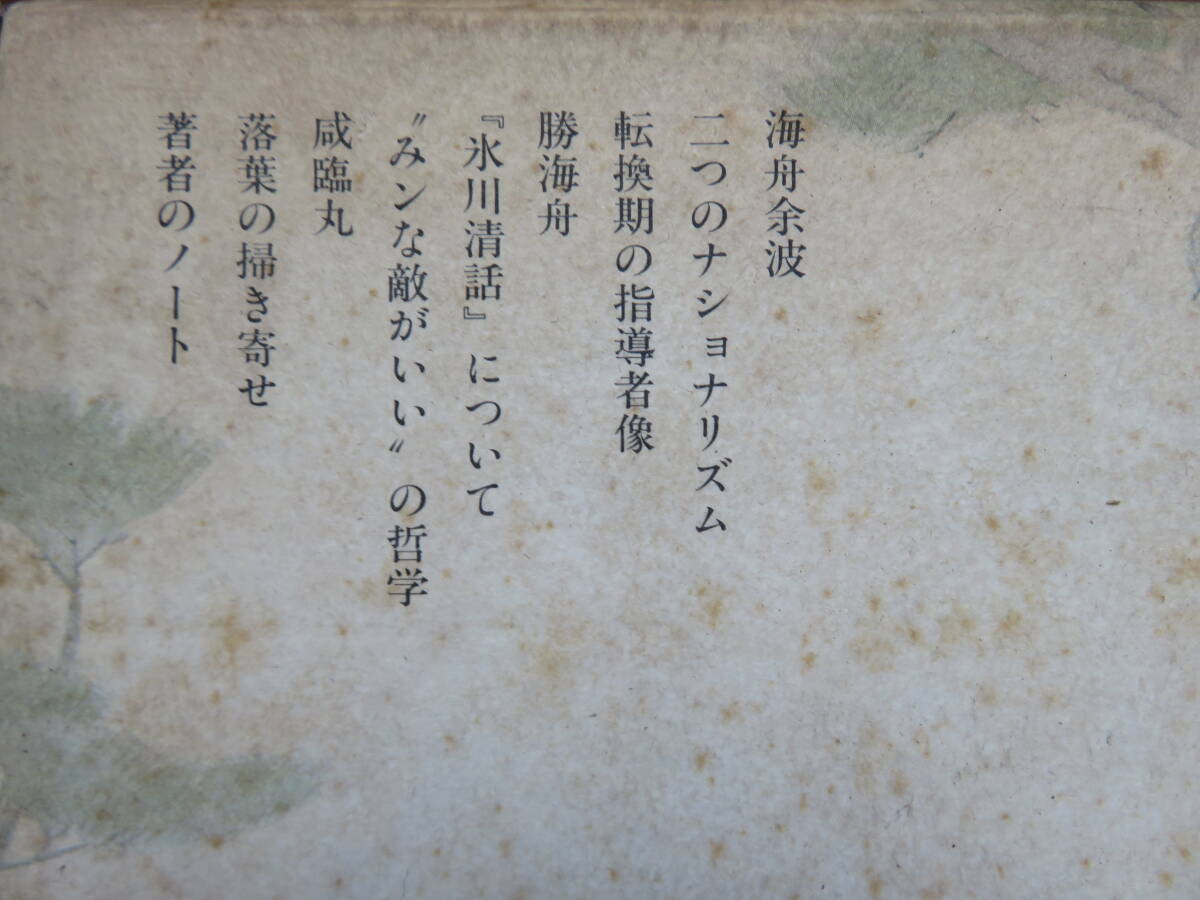 海舟余波
二つのナショナリズム
転換期の指導者像
勝海舟
『氷川清話』について
〝みンな敵がいい〟の哲学
咸臨丸
落葉の掃き寄せ
著者のノート